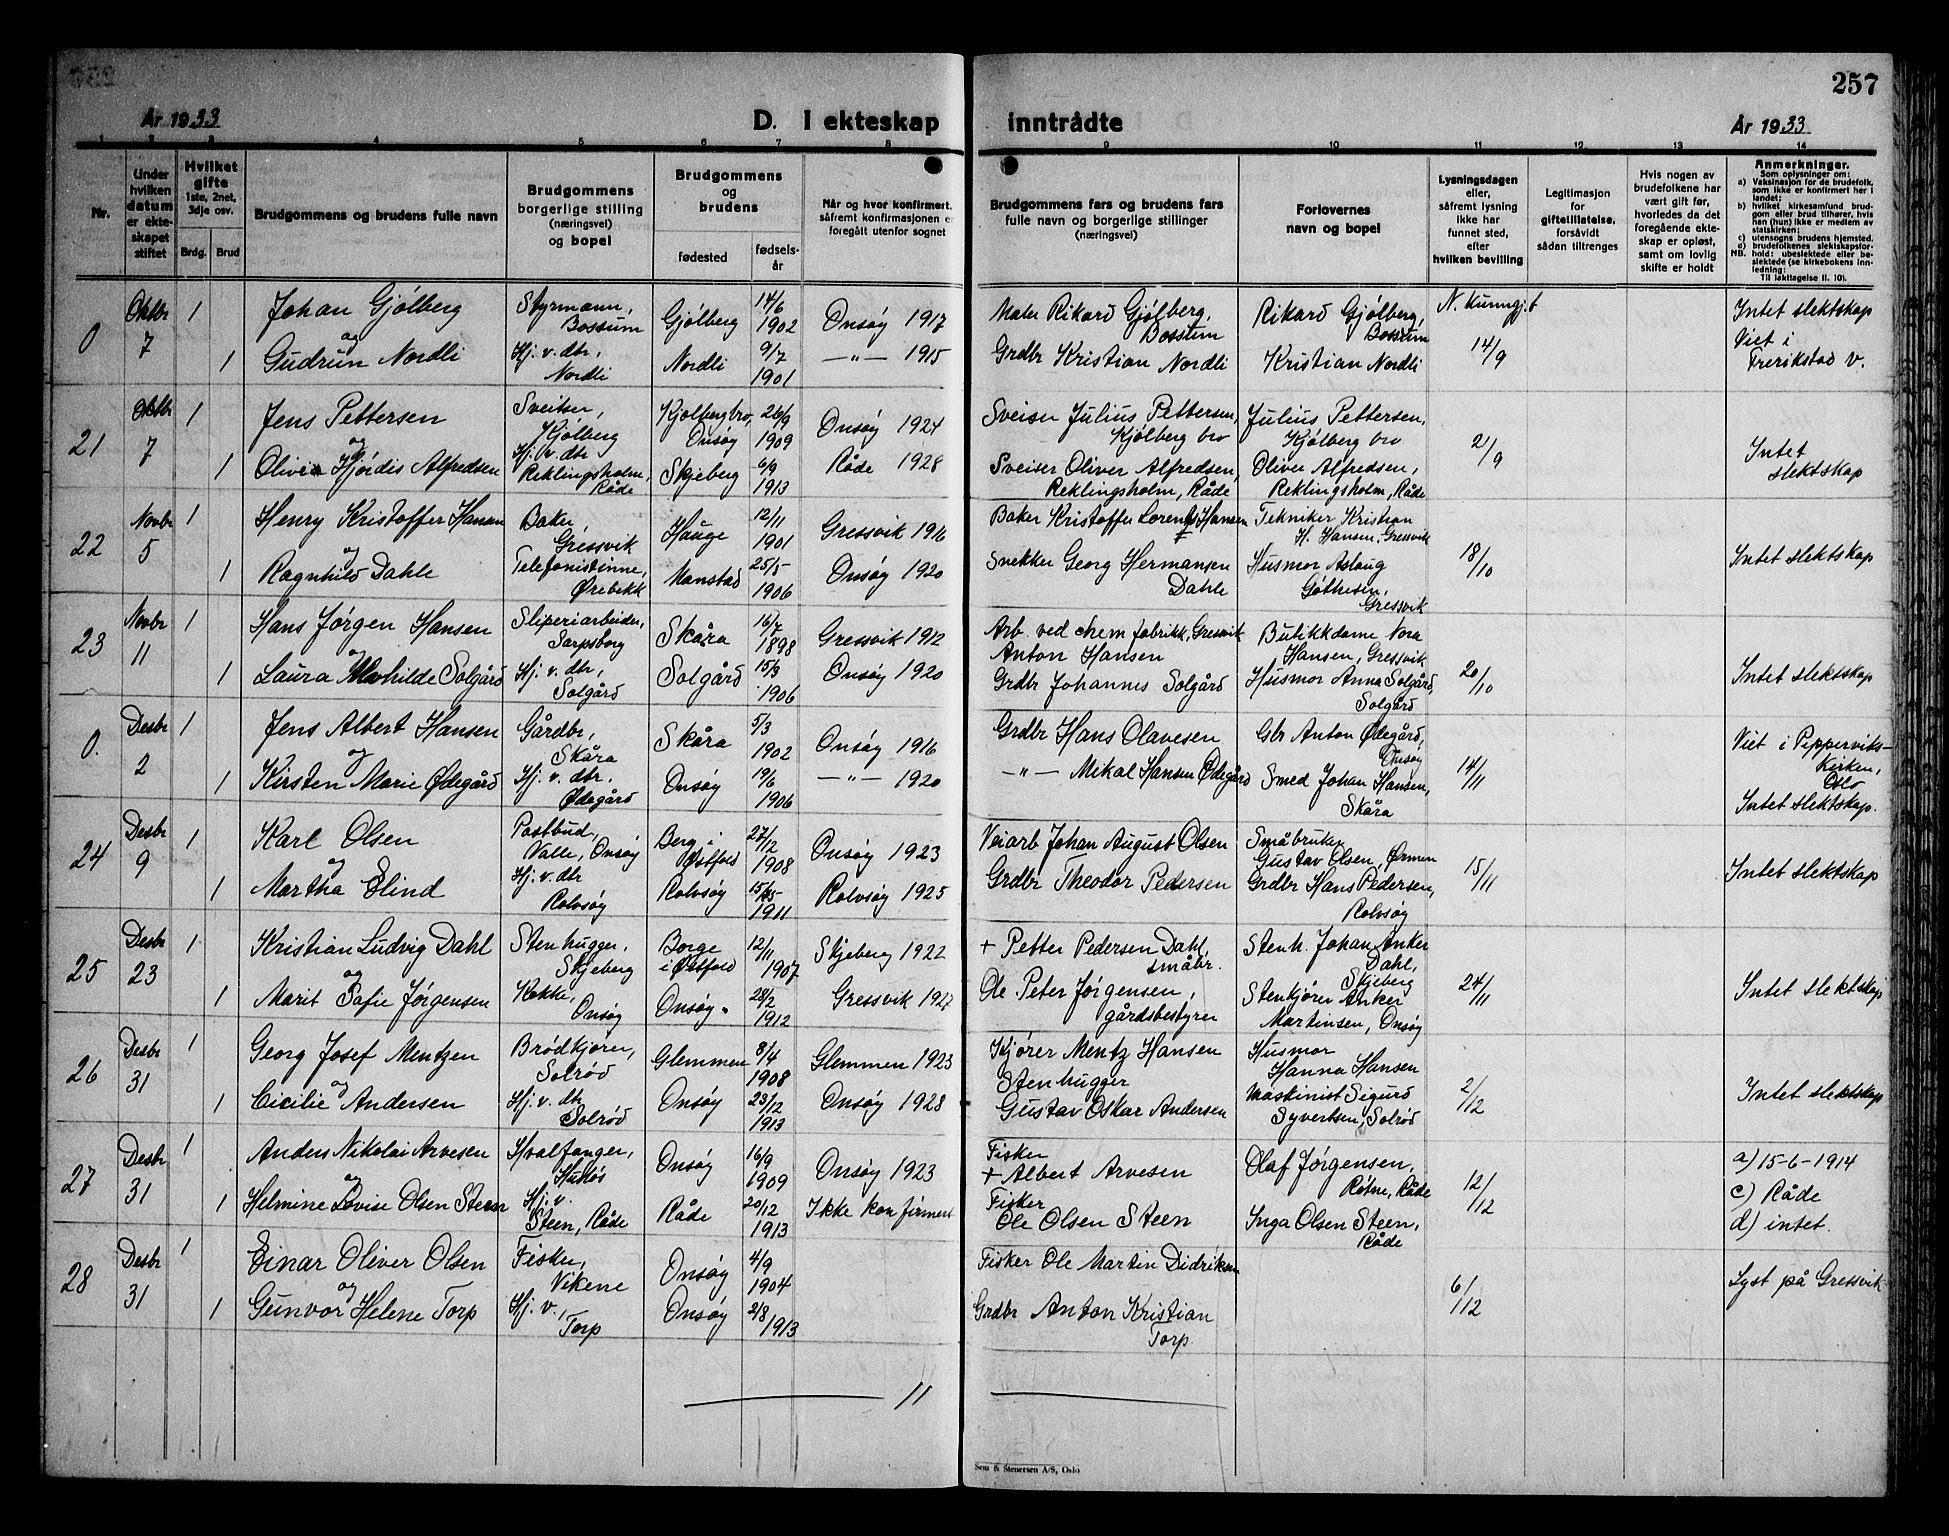 257
År 1933
D. I ekteskap inntrådte
År 1933
1 2 3 4 5 6 7 8 9 10 11 12 13 14
Nr.
Under
hvilken
datum
er ekte-
skapet
stiftet
Hvilket
gifte
1ste, 2net,
3dje osv.
Brdg. Brud
Brudgommens og brudens fulle navn
Brudgommens
borgerlige stilling
(næringsvei)
og bopel
Brudgommens
og
brudens
fødested
fødsels-
år
Når og hvor konfirmert,
såfremt konfirmasjonen er
foregått utenfor sognet
Brudgommens fars og brudens fars
fulle navn og borgerlige stillinger
(næringsvei)
Forlovernes
navn og bopel
Lysningsdagen
eller,
såfremt lysning
ikke har
funnet sted,
efter
hvilken bevilling
Legitimasjon
for
giftetillatelse,
forsåvidt
sådan tiltrenges
Hvis nogen av
brudefolkene har
vært gift før,
hvorledes da det
foregående ekte-
skap er opløst,
samt om lovlig
skifte er holdt
Anmerkninger.
Som oplysninger om:
a) Vaksinasjon for de brudefolk,
som ikke er konfirmert her i
landet;
b) hvilket kirkesamfund brud-
gom eller brud tilhører, hvis
han (hun) ikke er medlem av
statskirken;
c) utensogns brudens hjemsted.
d) brudefolkenes slektskapsfor-
NB. hold: ubeslektede eller be-
slektede (se kirkebokens inn-
ledning:
Til iakttagelse II. 10).
0 Oktbr 7 1 Johan Gjølberg Styrmann, Bossum Gjølberg 14/6 1902 Onsøy 1917 Maler Rikard Gjølberg, Bossum Rikard Gjølberg, Bossum N. kunngj.t 14/9 Intet slektskap
og
1 Gudrun Nordli Hj. v. dtr, Nordli Nordli 9/7 1901 —"— 1915 Grdbr Kristian Nordli Kristian Nordli Viet i Frerikstad v.
21 Oktbr 7 1 Jens Pettersen Sveitser, Kjølberg Kjølberg bro, Onsøy 26/9 1909 Onsøy 1924 Sveiser Julius Pettersen, Kjølberg bro Julius Pettersen, Kjølberg bro 21/9 Intet slektskap
og
1 Olivia Hjørdis Alfredsen Hj. v. dtr Reklingsholm, Råde Skjeberg 6/9 1913 Råde 1928 Sveiser Oliver Alfredsen, Reklingsholm, Råde Oliver Alfredsen, Reklingsholm, Råde
22 Novbr 5 1 Henry Kristoffer Hansen Baker, Gressvik Hauge 12/11 1901 Gressvik 1916 Baker Kristoffer Lorents Hansen Tekniker Kristian H. Hansen, Gressvik 18/10 Intet slektskap
og
1 Ragnhild Dahle Telefonistinne, Ørebekk Manstad 25/5 1906 Onsøy 1920 Snekker Georg Hermansen Dahle Husmor Aslaug Gøthesen, Gressvik
23 Novbr 11 1 Hans Jørgen Hansen Sliperiarbeider, Sarpsborg Skåra 16/7 1898 Gressvik 1912 Arb. ved chem fabrikk, Gressvik Anton Hansen Butikkdame Nora Hansen, Gressvik 20/10 Intet slektskap
og
1 Laura Mathilde Solgård Hj. v. dtr, Solgård Solgård 15/9 1906 Onsøy 1920 Grdbr Johannes Solgård Husmor Anna Solgård, Solgård
0. Desbr 2 1 Jens Albert Hansen Gårdbr, Skåra Skåra 5/3 1902 Onsøy 1916 Grdbr Hans Olavesen Gbr Anton Ødegård, Onsøy 14/11 Viet i Pepperviks- Kirken, Oslo
og
1 Kirsten Marie Ødegård Hj. v. dtr. Ødegård Onsøy 19/6 1906 —"— 1920 —"— Mikal Hansen Ødegård Smed Johan Hansen, Skåra Intet slektskap.
24 Desbr 9 1 Karl Olsen Postbud, Valle, Onsøy Berg i Østfold 27/12 1908 Onsøy 1923 Veiarb Johan August Olsen Småbruker Gustav Olsen, Ørmen 15/11 Intet slektskap
og
1 Martha Elind Hj. v. dtr Rolvsøy Rolvsøy 1911 Rolvsøy 1925 Grdbr Theodor Pedersen Grdbr Hans Pedersen, Rolvsøy
25 Desbr 23 1 Kristian Ludvig Dahl Stenhugger, Skjeberg Borge i Østfold 12/11 1907 Skjeberg 1922 + Petter Pedersen Dahl, småbr. Stenh. Johan Anker Dahl, Skjeberg 24/11 Intet slektskap
og
1 Marit Sofie Jørgensen Kokke, Onsøy Onsøy 28/2 1912 Gressvik 1927 Ole Peter Jørgensen, gårdsbestyrer Stenkjører Anker Martinsen, Onsøy
26 Desbr 31 1 Georg Josef Mentzen Brødkjører, Solrød Glemmen 8/4 1908 Glemmen 1923 Kjører Mentz Hansen Husmor Hanna Hansen 2/12 Intet slektskap
og
1 Cicilie Andersen Hj. v. dtr Solrød Onsøy 23/12 1913 Onsøy 1928 Stenhugger Gustav Oskar Andersen Maskinist Sigurd Syvertsen, Solrød
27 Desbr 31 1 Anders Nikolai Arvesen Hvalfanger, Onsøy 16/9 1909 Onsøy 1923 Fisker + Albert Arvesen Olaf Jørgensen, Råde 12/12 a) 15-6-1914
og
1 Helmine Lovise Olsen Steen Hj. v. Steen, Råde Råde 20/12 1913 Ikke konfirmert Fisker Ole Olsen Steen Inga Olsen Steen, Råde c) Råde
d) intet.
28 Desbr 31 1 Einar Oliver Olsen Fisker, Vikene Onsøy 4/9 1904 Fisker Ole Martin Didriksen 6/12 Lyst på Gressvik
og
1 Gunvor Helene Torp Hj. v., Torp Onsøy 2/8 1913 Grdbr Anton Kristian Torp.
11
Sem & Stenersen A/S, Oslo